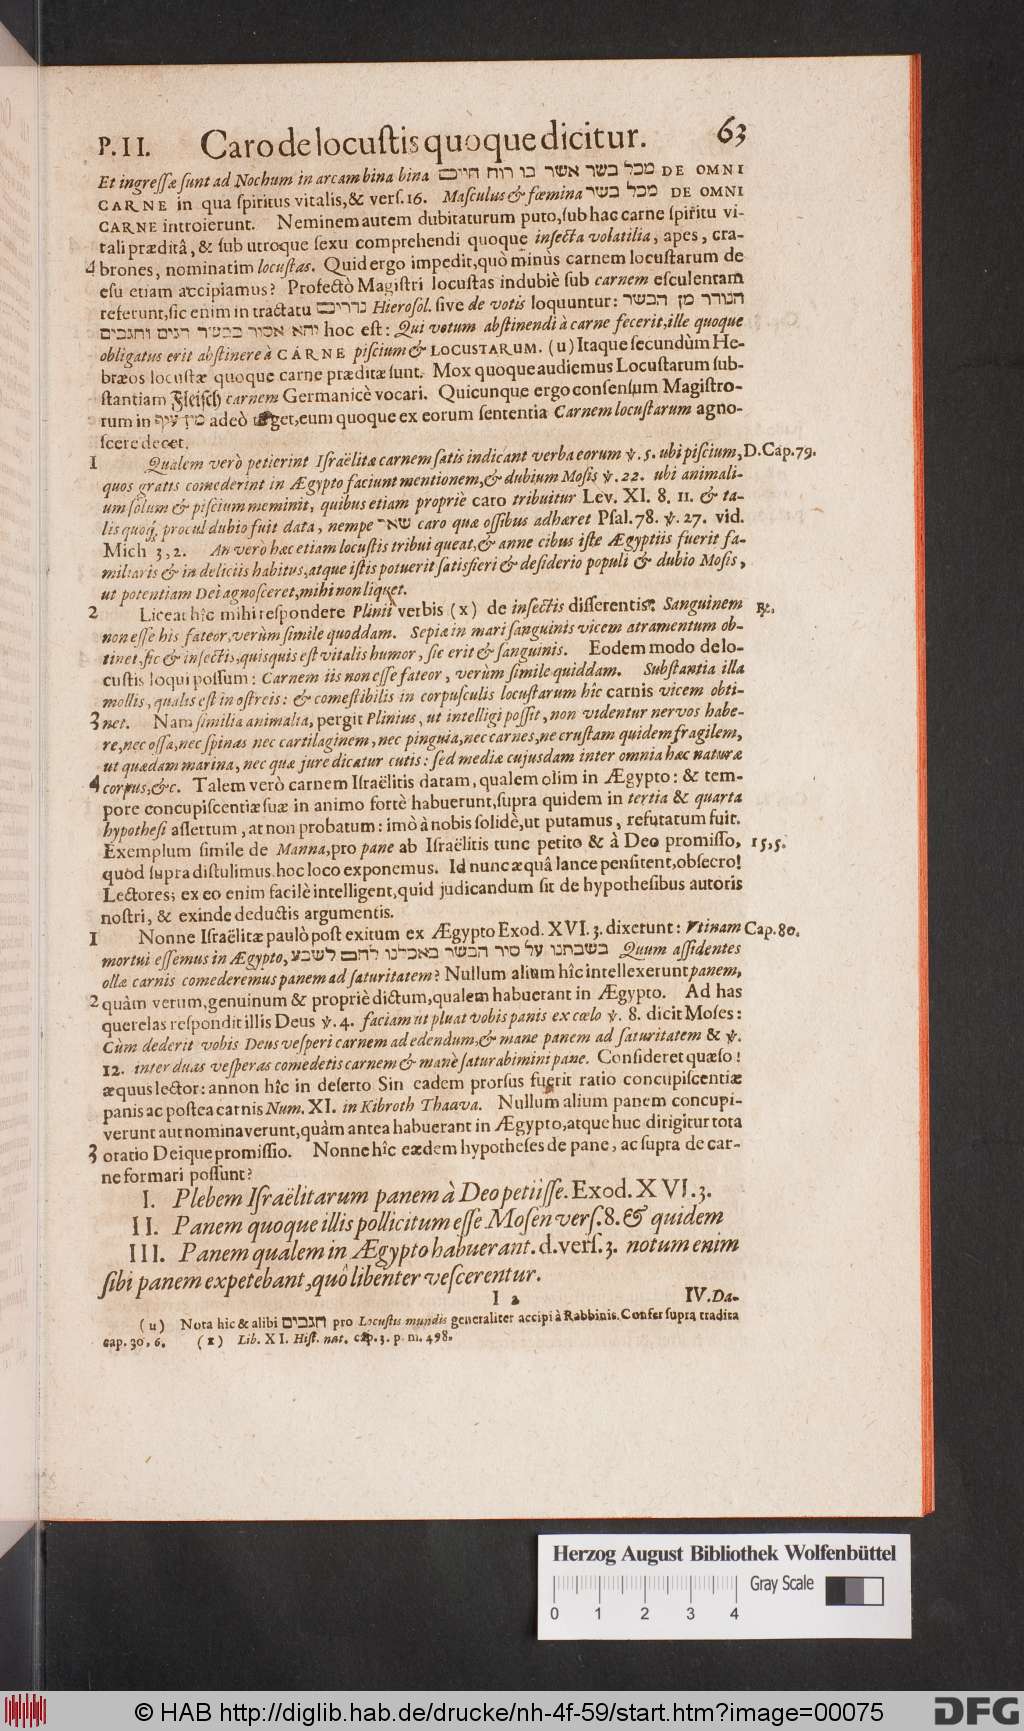 P. II. Caro de locustis quoque dicitur. 63
Et ingressæ sunt ad Nochum in arcam bina bina מכל בשר אשר בו רוח חיים DE OMNI
CARNE in qua spiritus vitalis, & vers. 16. Masculus & fœmina מכל בשר DE OMNI
CARNE introierunt. Neminem autem dubitaturum puto, sub hac carne spiritu vi-
tali præditâ, & sub utroque sexu comprehendi quoque insecta volatilia, apes, cra-
4 brones, nominatim locustas. Quid ergo impedit, quò minùs carnem locustarum de
esu etiam accipiamus? Profectò Magistri locustas indubiè sub carnem esculentam
referunt, sic enim in tractatu נדרים Hierosol. sive de votis loquuntur: הנודר מן הבשר
יהא אסור בבשר דגים וחגבים hoc est: Qui votum abstinendi à carne fecerit, ille quoque
obligatus erit abstinere à CARNE piscium & LOCUSTARUM. (u) Itaque secundùm He-
bræos locustæ quoque carne præditæ sunt. Mox quoque audiemus Locustarum sub-
stantiam Fleisch carnem Germanicè vocari. Quicunque ergo consensum Magistro-
rum in מין עוף adeò urget, eum quoque ex eorum sententia Carnem locustarum agno-
scere decet.
1 Qualem verò petierint Israëlitæ carnem satis indicant verba eorum ℣. 5. ubi piscium, D. Cap. 79.
quos gratis comederint in Ægypto faciunt mentionem, & dubium Mosis ℣. 22. ubi animali-
um solum & piscium meminit, quibus etiam propriè caro tribuitur Lev. XI. 8. 11. & ta-
lis quoq; procul dubio fuit data, nempe שאר caro quæ ossibus adhæret Psal. 78. ℣. 27. vid.
Mich 3, 2. An verò hæc etiam locustis tribui queat, & anne cibus iste Ægyptiis fuerit fa-
miliaris & in deliciis habitus, atque istis potuerit satisfieri & desiderio populi & dubio Mosis,
ut potentiam Dei agnosceret, mihi non liquet.
2 Liceat hîc mihi respondere Plinii verbis (x) de insectis disserentis: Sanguinem ℞.
non esse his fateor, verùm simile quoddam. Sepiæ in mari sanguinis vicem atramentum ob-
tinet, sic & insectis, quisquis est vitalis humor, sic erit & sanguinis. Eodem modo de lo-
custis loqui possum: Carnem iis non esse fateor, verùm simile quiddam. Substantia illa
mollis, qualis est in ostreis: & comestibilis in corpusculis locustarum hîc carnis vicem obti-
3 net. Nam similia animalia, pergit Plinius, ut intelligi possit, non videntur nervos habe-
re, nec ossa, nec spinas nec cartilaginem, nec pinguia, nec carnes, ne crustam quidem fragilem,
ut quædam marina, nec quæ jure dicatur cutis: sed mediæ cujusdam inter omnia hæc naturæ
4 corpus, &c. Talem verò carnem Israëlitis datam, qualem olim in Ægypto: & tem-
pore concupiscentiæ suæ in animo fortè habuerunt, supra quidem in tertia & quarta
hypothesi assertum, at non probatum: imò à nobis solidè, ut putamus, refutatum fuit.
Exemplum simile de Manna, pro pane ab Israëlitis tunc petito & à Deo promisso, 15, 5.
quod supra distulimus, hoc loco exponemus. Id nunc æquâ lance pensitent, obsecro!
Lectores; ex eo enim facilè intelligent, quid judicandum sit de hypothesibus autoris
nostri, & exinde deductis argumentis.
1 Nonne Israëlitæ paulò post exitum ex Ægypto Exod. XVI. 3. dixerunt: Utinam Cap. 80.
mortui essemus in Ægypto, בשבתנו על סיר הבשר באכלנו לחם לשבע Quum assidentes
ollæ carnis comederemus panem ad saturitatem? Nullum alium hîc intellexerunt panem,
2 quàm verum, genuinum & propriè dictum, qualem habuerant in Ægypto. Ad has
querelas respondit illis Deus ℣. 4. faciam ut pluat vobis panis ex cœlo ℣. 8. dicit Moses:
Cùm dederit vobis Deus vesperi carnem ad edendum, & mane panem ad saturitatem & ℣.
12. inter duas vesperas comedetis carnem & manè saturabimini pane. Consideret quæso!
æquus lector: annon hîc in deserto Sin eadem prorsus fuerit ratio concupiscentiæ
panis ac postea carnis Num. XI. in Kibroth Thaava. Nullum alium panem concupi-
verunt aut nominaverunt, quàm antea habuerant in Ægypto, atque huc dirigitur tota
3 oratio Deique promissio. Nonne hîc eædem hypotheses de pane, ac supra de car-
ne formari possunt?
I. Plebem Israëlitarum panem à Deo petiisse. Exod. XVI. 3.
II. Panem quoque illis pollicitum esse Mosen vers. 8. & quidem
III. Panem qualem in Ægypto habuerant. d. vers. 3. notum enim
sibi panem expetebant, quô libenter vescerentur.
I 2 IV. Da-
(u) Nota hic & alibi חגבים pro Locustis mundis generaliter accipi à Rabbinis. Confer supra tradita
cap. 30, 6. (x) Lib. XI. Hist. nat. cap. 3. p. m. 498.
Herzog August Bibliothek Wolfenbüttel
Gray Scale
0 1 2 3 4
© HAB http://diglib.hab.de/drucke/nh-4f-59/start.htm?image=00075
DFG